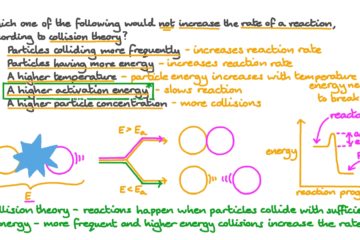 ich one of the following would not increase the rate of a reaction,
ording to collision theory?
Particles colliding more frequently - increases reaction rate
Particles having more energy - increases reaction rate
A higher temperature - particle energy increases with temperature
A higher activation energy - slows reaction
energy ne
A higher particle concentration - more collisions
to break
E > Ea
E < Ea
E
reactant
energy
reaction progr
ollision theory - reactions happen when particles collide with suffici
nergy - more frequent and higher energy collisions increase the rat